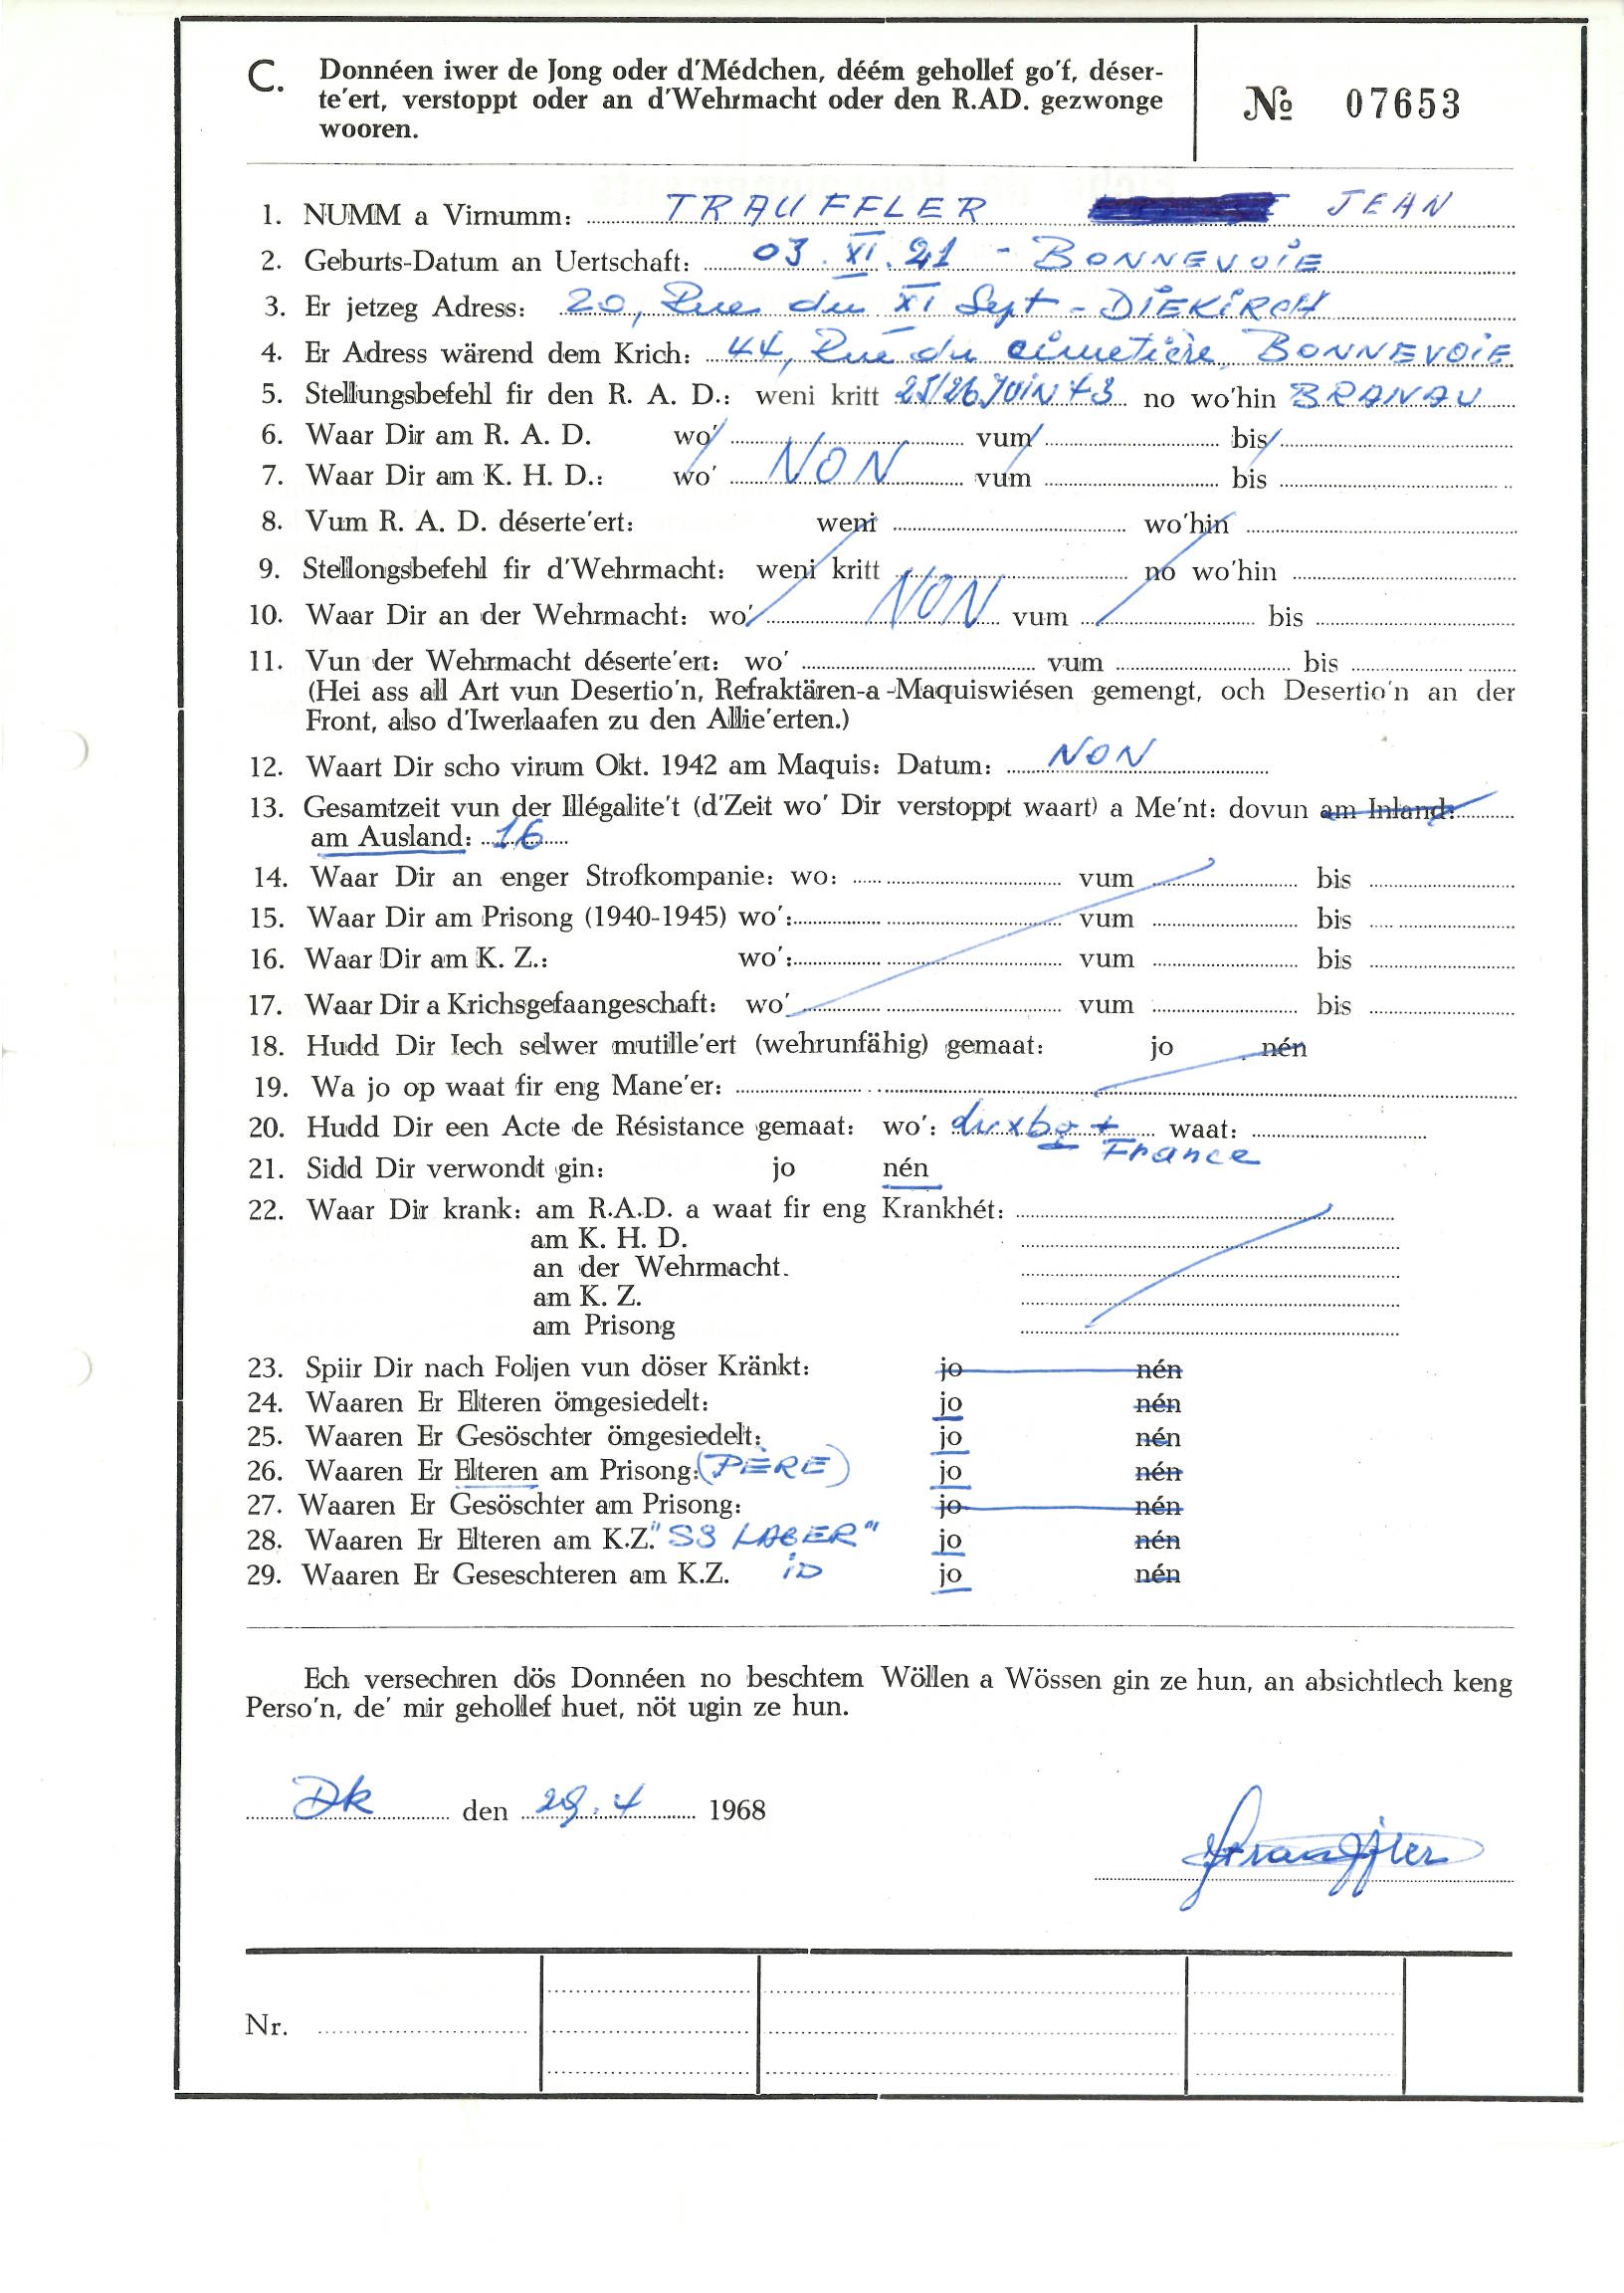 C. Donnéen iwer de Jong oder d'Médchen, déém gehollef go'f, déser-
te'ert, verstoppt oder an d'Wehrmacht oder den R.AD. gezwonge
wooren.
№ 07653
1. NUMM a Virnumm: TRAUFFLER JEAN
2. Geburts-Datum an Uertschaft: 03. XI. 21 - BONNEVOIE
3. Er jetzeg Adress: 20, Rue du XI Sept - DIEKIRCH
4. Er Adress wärend dem Krich: 44, Rue du cimetière BONNEVOIE
5. Stellungsbefehl fir den R. A. D.: weni kritt 25/26 JUIN 43 no wo'hin BRANAU
6. Waar Dir am R. A. D. wo' vum bis
7. Waar Dir am K. H. D.: wo' NON vum bis
8. Vum R. A. D. déserte'ert: weni wo'hin
9. Stellongsbefehl fir d'Wehrmacht: weni kritt no wo'hin
10. Waar Dir an der Wehrmacht: wo' NON vum bis
11. Vun der Wehrmacht déserte'ert: wo' vum bis
(Hei ass all Art vun Desertio'n, Refraktären-a-Maquiswiésen gemengt, och Desertio'n an der
Front, also d'Iwerlaafen zu den Allie'erten.)
12. Waart Dir scho virum Okt. 1942 am Maquis: Datum: NON
13. Gesamtzeit vun der Illégalite't (d'Zeit wo' Dir verstoppt waart) a Me'nt: dovun am Inland:
am Ausland: 16
14. Waar Dir an enger Strofkompanie: wo: vum bis
15. Waar Dir am Prisong (1940-1945) wo': vum bis
16. Waar Dir am K. Z.: wo': vum bis
17. Waar Dir a Krichsgefaangeschaft: wo' vum bis
18. Hudd Dir Iech selwer mutille'ert (wehrunfähig) gemaat: jo nén
19. Wa jo op waat fir eng Mane'er:
20. Hudd Dir een Acte de Résistance gemaat: wo': Luxbg + France waat:
21. Sidd Dir verwondt gin: jo nén
22. Waar Dir krank: am R.A.D. a waat fir eng Krankhét:
am K. H. D.
an der Wehrmacht.
am K. Z.
am Prisong
23. Spiir Dir nach Foljen vun döser Kränkt: jo nén
24. Waaren Er Elteren ömgesiedelt: jo nén
25. Waaren Er Gesöschter ömgesiedelt: jo nén
26. Waaren Er Elteren am Prisong: (PÈRE) jo nén
27. Waaren Er Gesöschter am Prisong: jo nén
28. Waaren Er Elteren am K.Z. "SS LAGER" jo nén
29. Waaren Er Geseschteren am K.Z. iD jo nén
Ech versechren dös Donnéen no beschtem Wöllen a Wössen gin ze hun, an absichtlech keng
Perso'n, de' mir gehollef huet, nöt ugin ze hun.
Dk den 29. 4 1968
Trauffler
Nr.